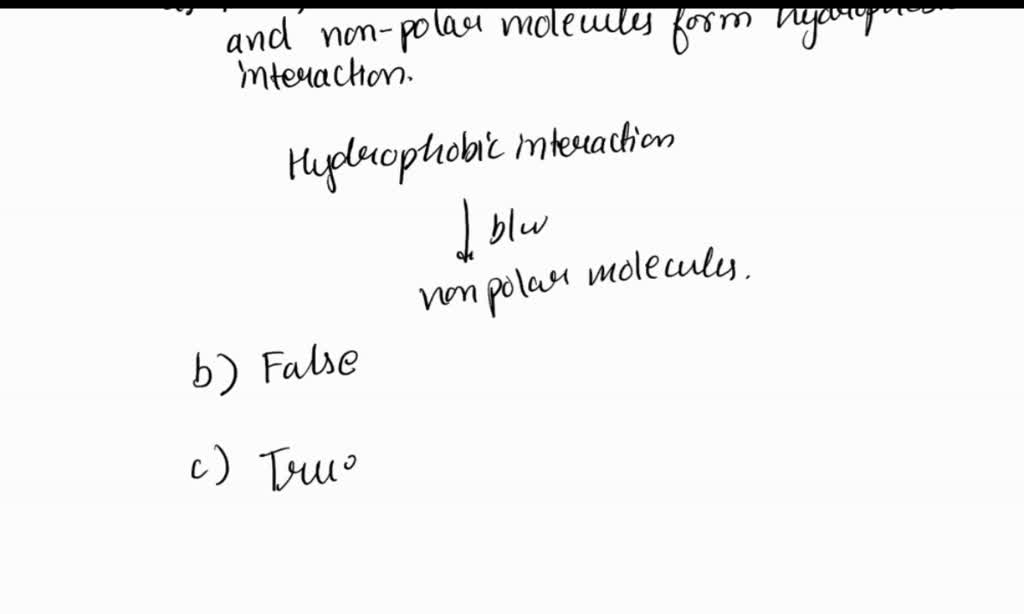 and non-polar molecules form
interaction.
Hydrophobic interaction
b/w
non polar molecules.
b) False
c) True